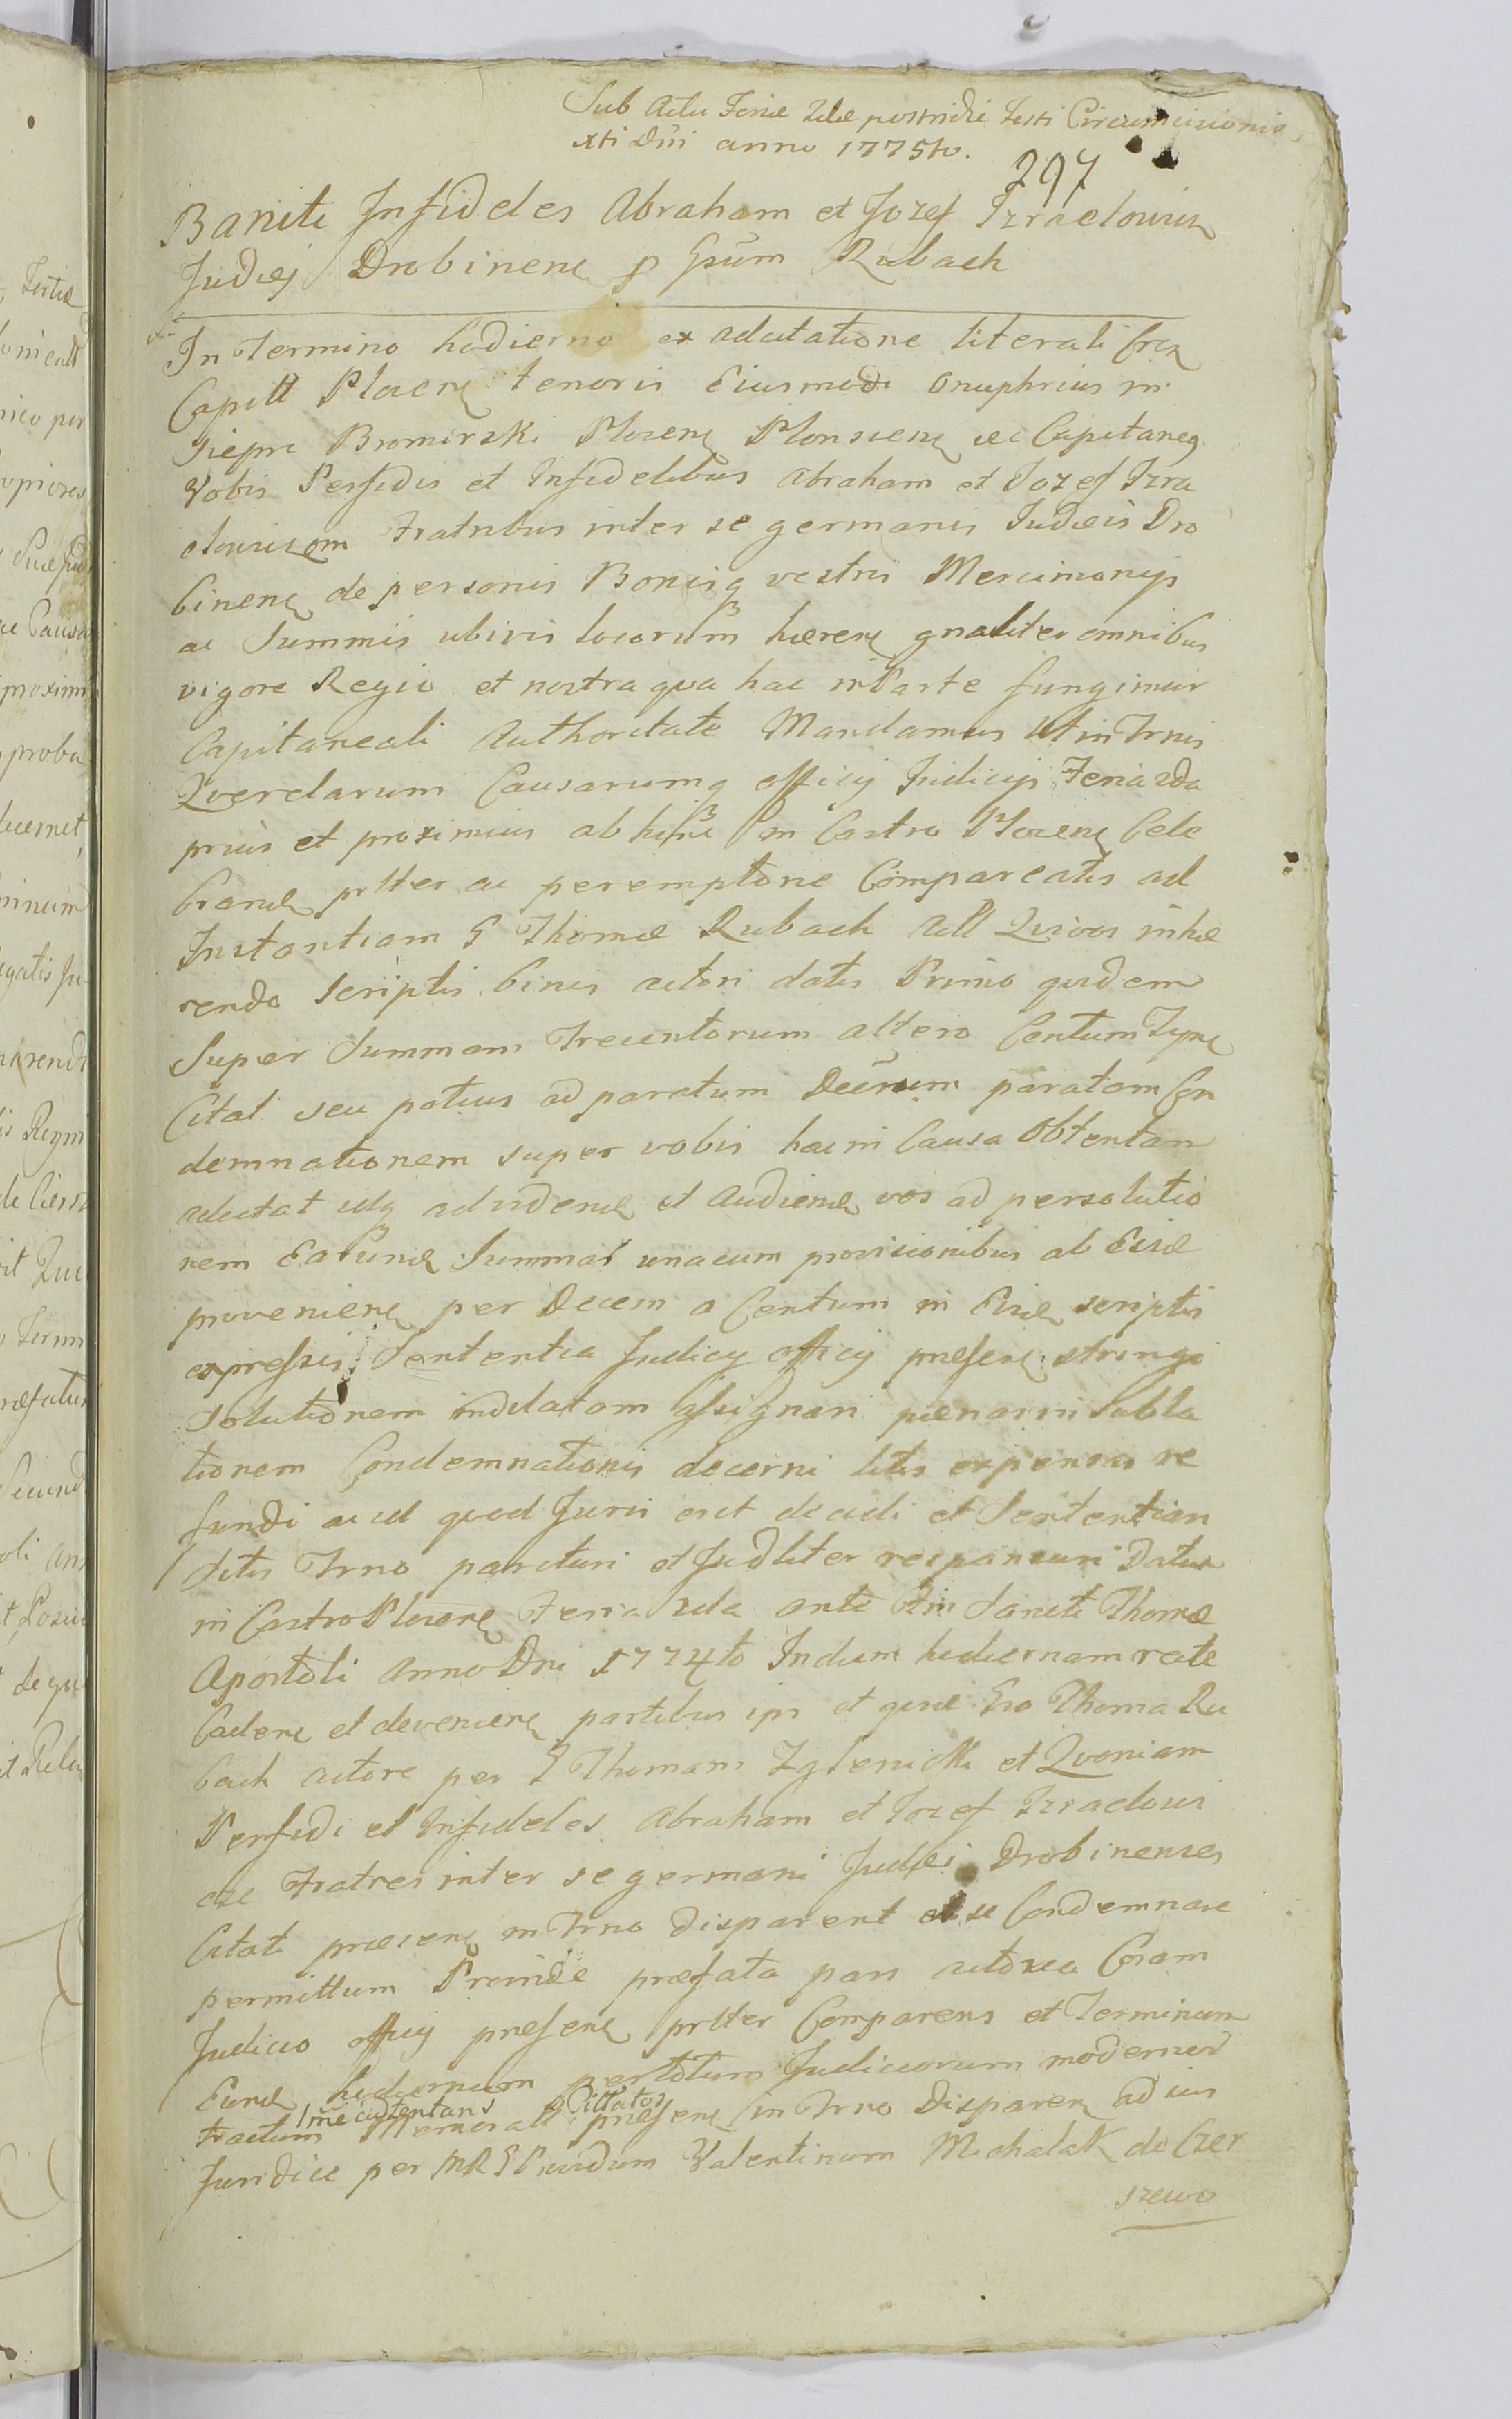 Sub Actu Feriæ 2dæ postridie Festi Circumcisionis
Xti Dni anno 1775to.
297
Baniti Infideles Abraham et Jozef Izraelowicz
Judæj Drobinen p Gsum Rubach
In Termino hodierno ex adcitatione literali
Capitt Plocen tenoris Eiusmodi Onuphrius in
Siepre Bromirski Plocen Plonscen &c Capitaneq
Vobis Perfidis et Infidelibus Abraham et Jozef Izra
elowiczom Fratribus inter se germanis Judæis Dro
binen de personis Bonisq vestris Mercimonijs
ac Summis ubivis locorum hæren gnaliter omnibus
vigore Regio et nostra qua hac in Parte fungimur
Capitaneali Authoritate Mandamus Ut in Trnis
Querelarum Causarumq officij Judicijs Feria 2da
prius et proximius ab hinc in Castro Plocen Cele
brand prtter ac peremptorie Compareatis ad
Instantiam G Thomæ Rubach Act Qui vos inhæ
rendo Scriptis binis actori datis Primo quidem
Super Summam Trecentorum altero Centum Tynf
Citat seu potius ad paratum Decretum paratam Con
demnationem super vobis hac in Causa Obtentam
adcitat idq ad vidend et Audiend vos ad persolutio
nem Earund Summar unacum provisionibus ab Eisd
provenien per Decem a Centum in Eisd scriptis
expressis Sententia Judicij officij præsen stringi
Solutionem indilatam assignari pænas in Subla
tionem Condemnationis decerni litis expensas re
fundi ac id quod Juris erit decidi et Sententiari
sitis Trno parituri et Judliter responsuri Datum
in Castro Plocen Feria 2da ante Fm Sancti Thomæ
Apostoli Anno Dni 1774to In diem hodiernam rate
Caden et devenien partibus ips et quid Gso Thoma Ru
bach actore per G Thomam Zglenicki et Quoniam
Perfidi et Infideles Abraham et Jozef Izraelowi
cze Fratres inter se germani Judæi Drobinenses
Citati præsen in Trno disparent et se Condemnare
permittunt Proinde præfata pars actorea Coram
Judicio officij præsen prtter Comparens et Terminum
Eund hodiernum per totum Judiciorum modernor
tractum me adtentans Memoratt Cittatos præsen in Trno Disparen ad ius
Juridice per MR G Prvidum Valentinum Michalak de Czer
szewo